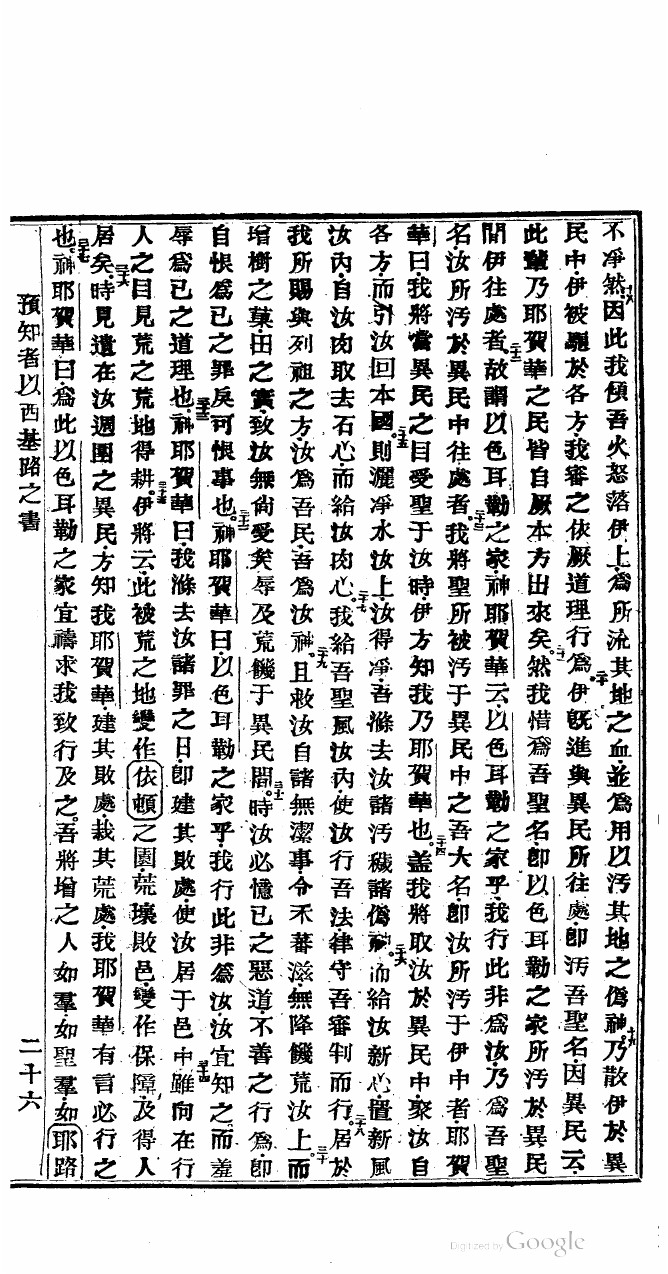 不凈然因此我傾吾火怒落伊上為所流其地之血並為用以汚其地之偽神十九乃散伊於異
民中伊被驅於各方我審之依厥道理行為二十伊既進與異民所往處即汚吾聖名因異民云
此輩乃耶賀華之民皆自厥本方出來矣二十一然我惜為吾聖名即以色耳勒之家所汚於異民
間伊往處者二十二故謂以色耳勒之家神耶賀華云以色耳勒之家乎我行此非為汝乃為吾聖
名汝所汚於異民中往處者二十三我將聖所被汚于異民中之吾大名即汝所汚于伊中者耶賀
華曰我將當異民之目受聖于汝時伊方知我乃耶賀華也二十四蓋我將取汝於異民中聚汝自
各方而引汝回本國二十五則灑凈水汝上汝得凈吾滌去汝諸汚穢諸偽神二十六而給汝新心置新風
汝內自汝肉取去石心而給汝肉心二十七我給吾聖風汝內使汝行吾法律守吾審判而行二十八居於
我所賜與列祖之方汝為吾民吾為汝神二十九且救汝自諸無潔事令禾蕃滋無降饑荒汝上三十而
增樹之菓田之實致汝無尙受矣辱及荒饑于異民間三十一時汝必憶已之惡道不善之行為即
自恨為已之罪戾可恨事也三十二神耶賀華曰以色耳勒之家乎我行此非為汝汝宜知之而羞
辱為已之道理也三十三神耶賀華曰我滌去汝諸罪之日即建其敗處使汝居于邑中三十四雖向在行
人之目見荒之荒地得耕三十五伊將云此被荒之地變作依頓之園荒壞敗邑變作保障及得人
居矣三十六時見遺在汝週圍之異民方知我耶賀華建其敗處栽其荒處我耶賀華有言必行之
也三十七神耶賀華曰為此以色耳勒之家宜禱求我致行及之吾將增之人如羣如聖羣如耶路
預知者以西基路之書 二十六
Digitized by Google